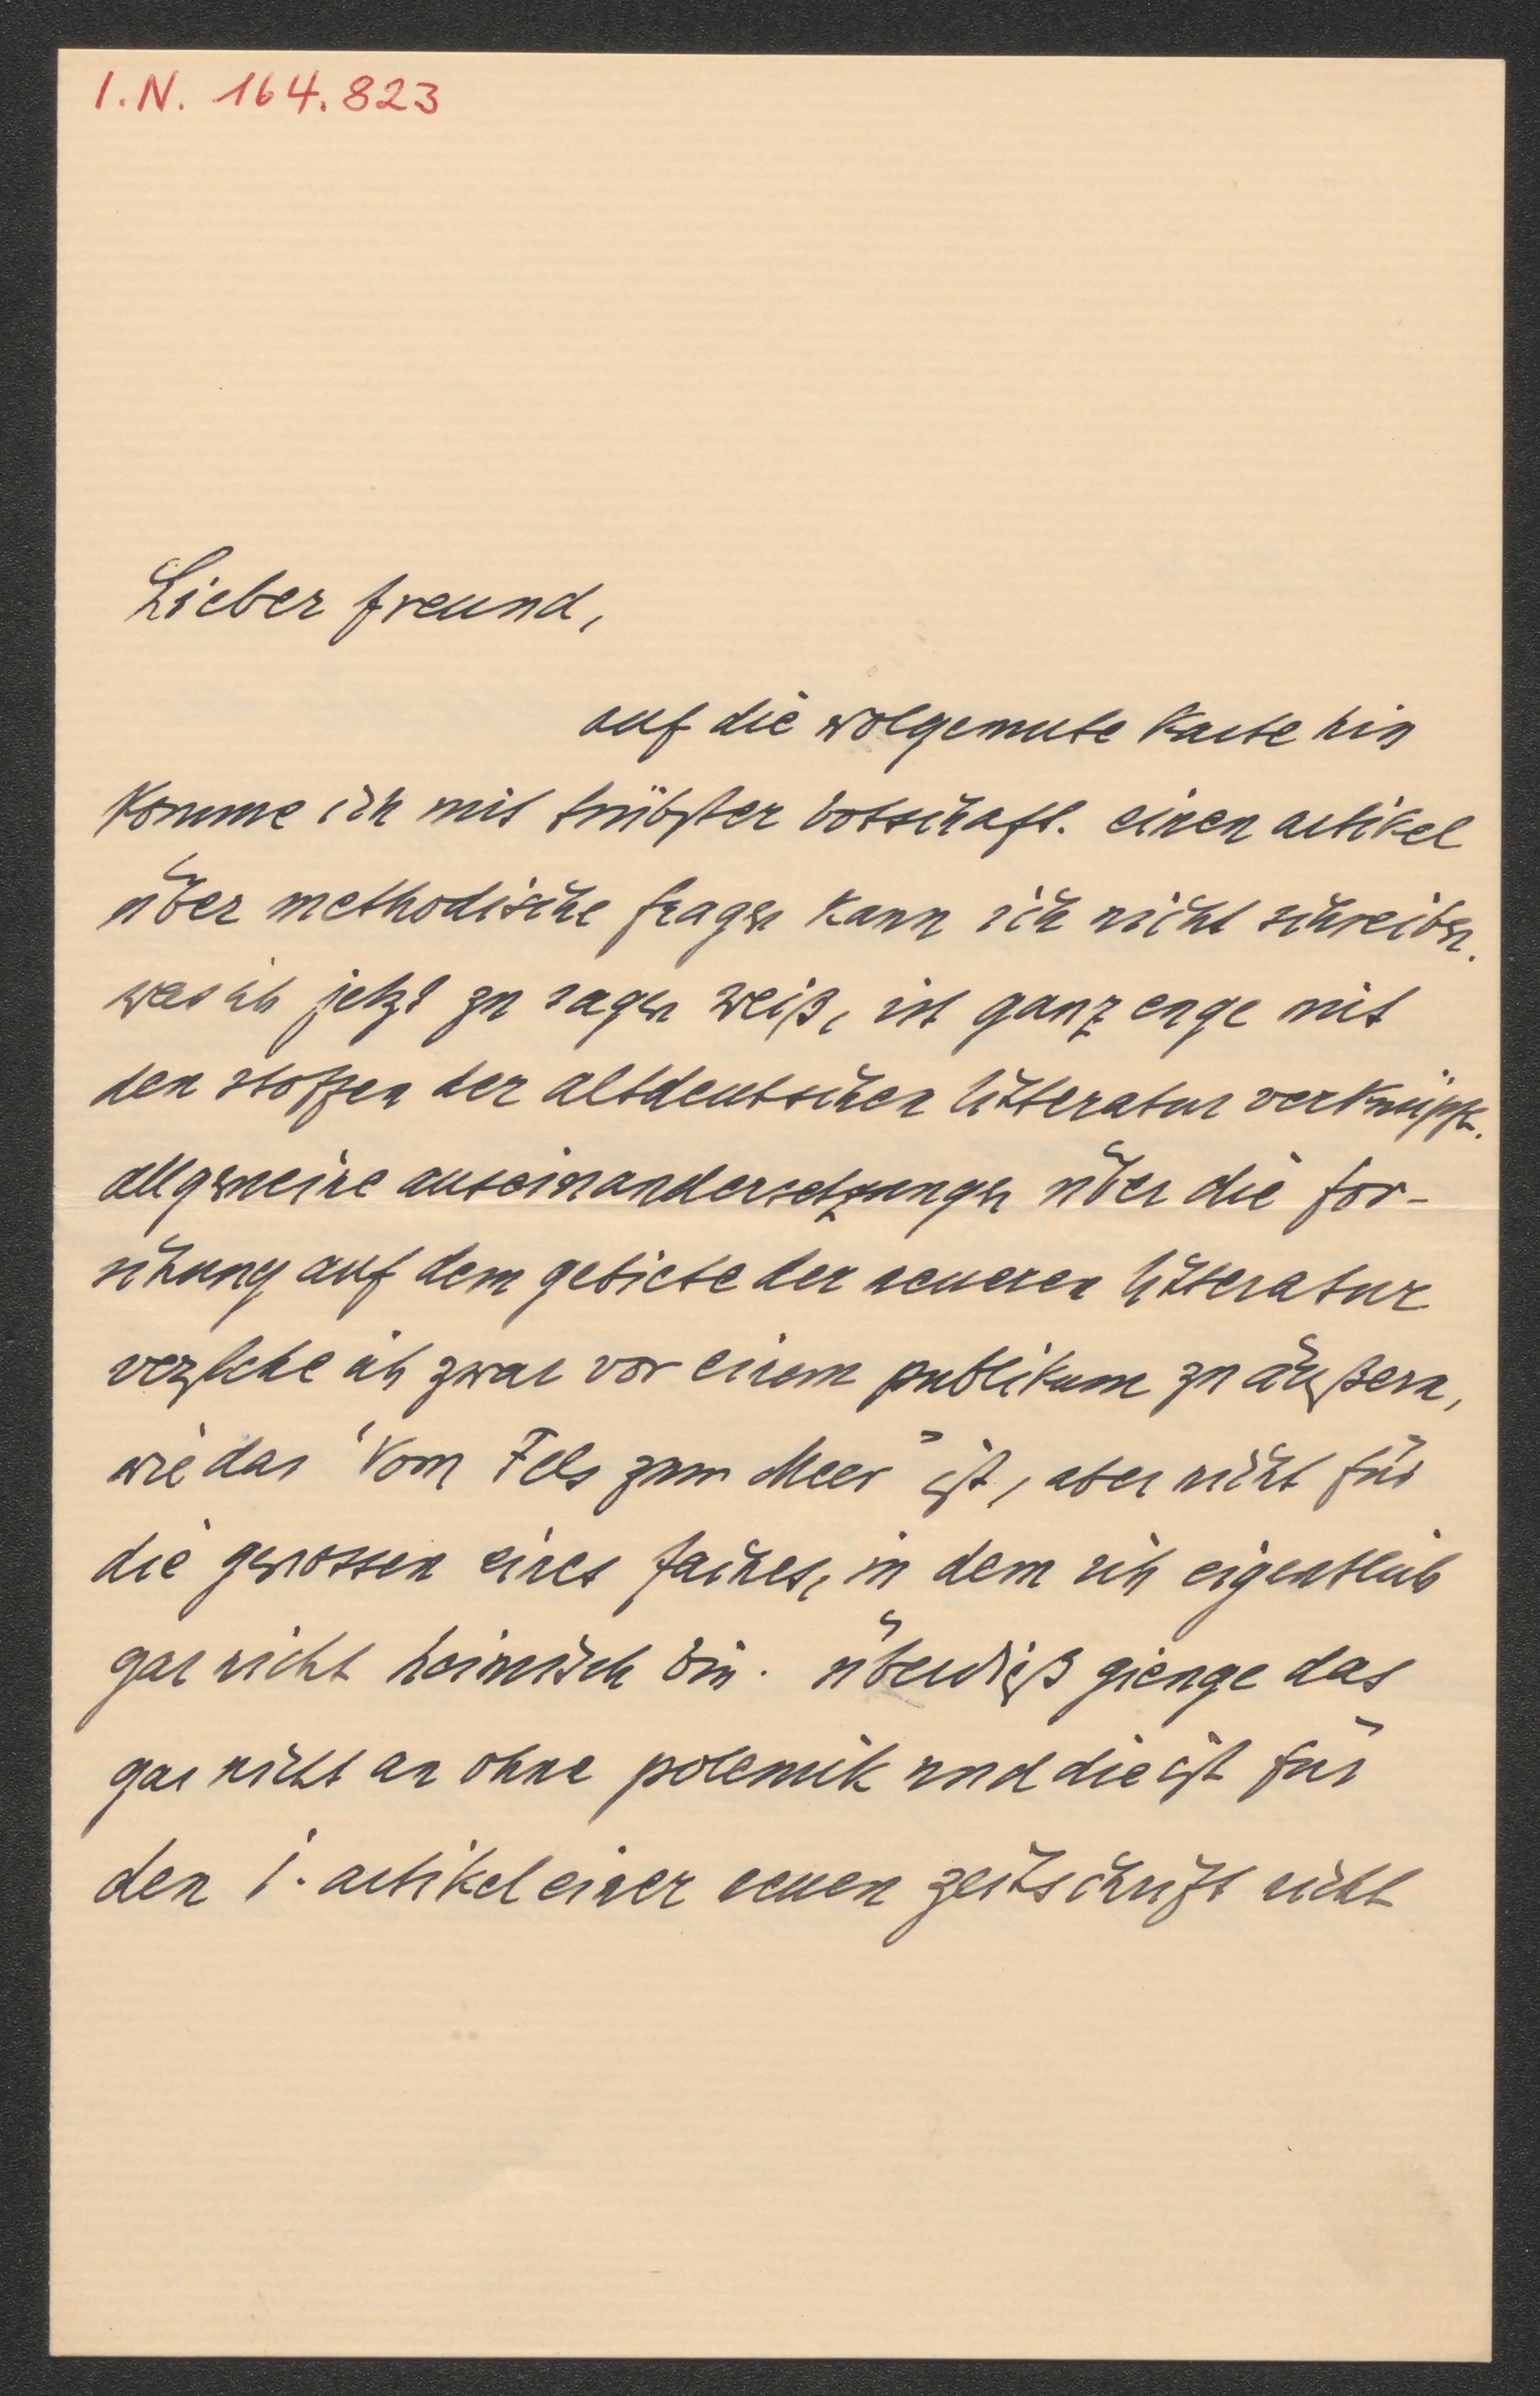 I.N. 164.823
Lieber freund,
auf die wolgemute karte hin
komme ich mit trübster botschaft. einen artikel
über methodische fragen kann ich nicht schreiben.
was ich jetzt zu sagen weiß, ist ganz enge mit
den stoffen der altdeutschen litteratur verknüpft.
allgemeine auseinandersetzungen über die for-
schung auf dem gebiete der neueren litteratur
verstehe ich zwar vor einem publikum zu äußern,
wie das 'Vom Fels zum Meer' ist, aber nicht für
die genossen eines faches, in dem ich eigentlich
gar nicht heimisch bin. überdieß gienge das
gar nicht an ohne polemik und die ist für
den 1. artikel einer neuen zeitschrift nicht